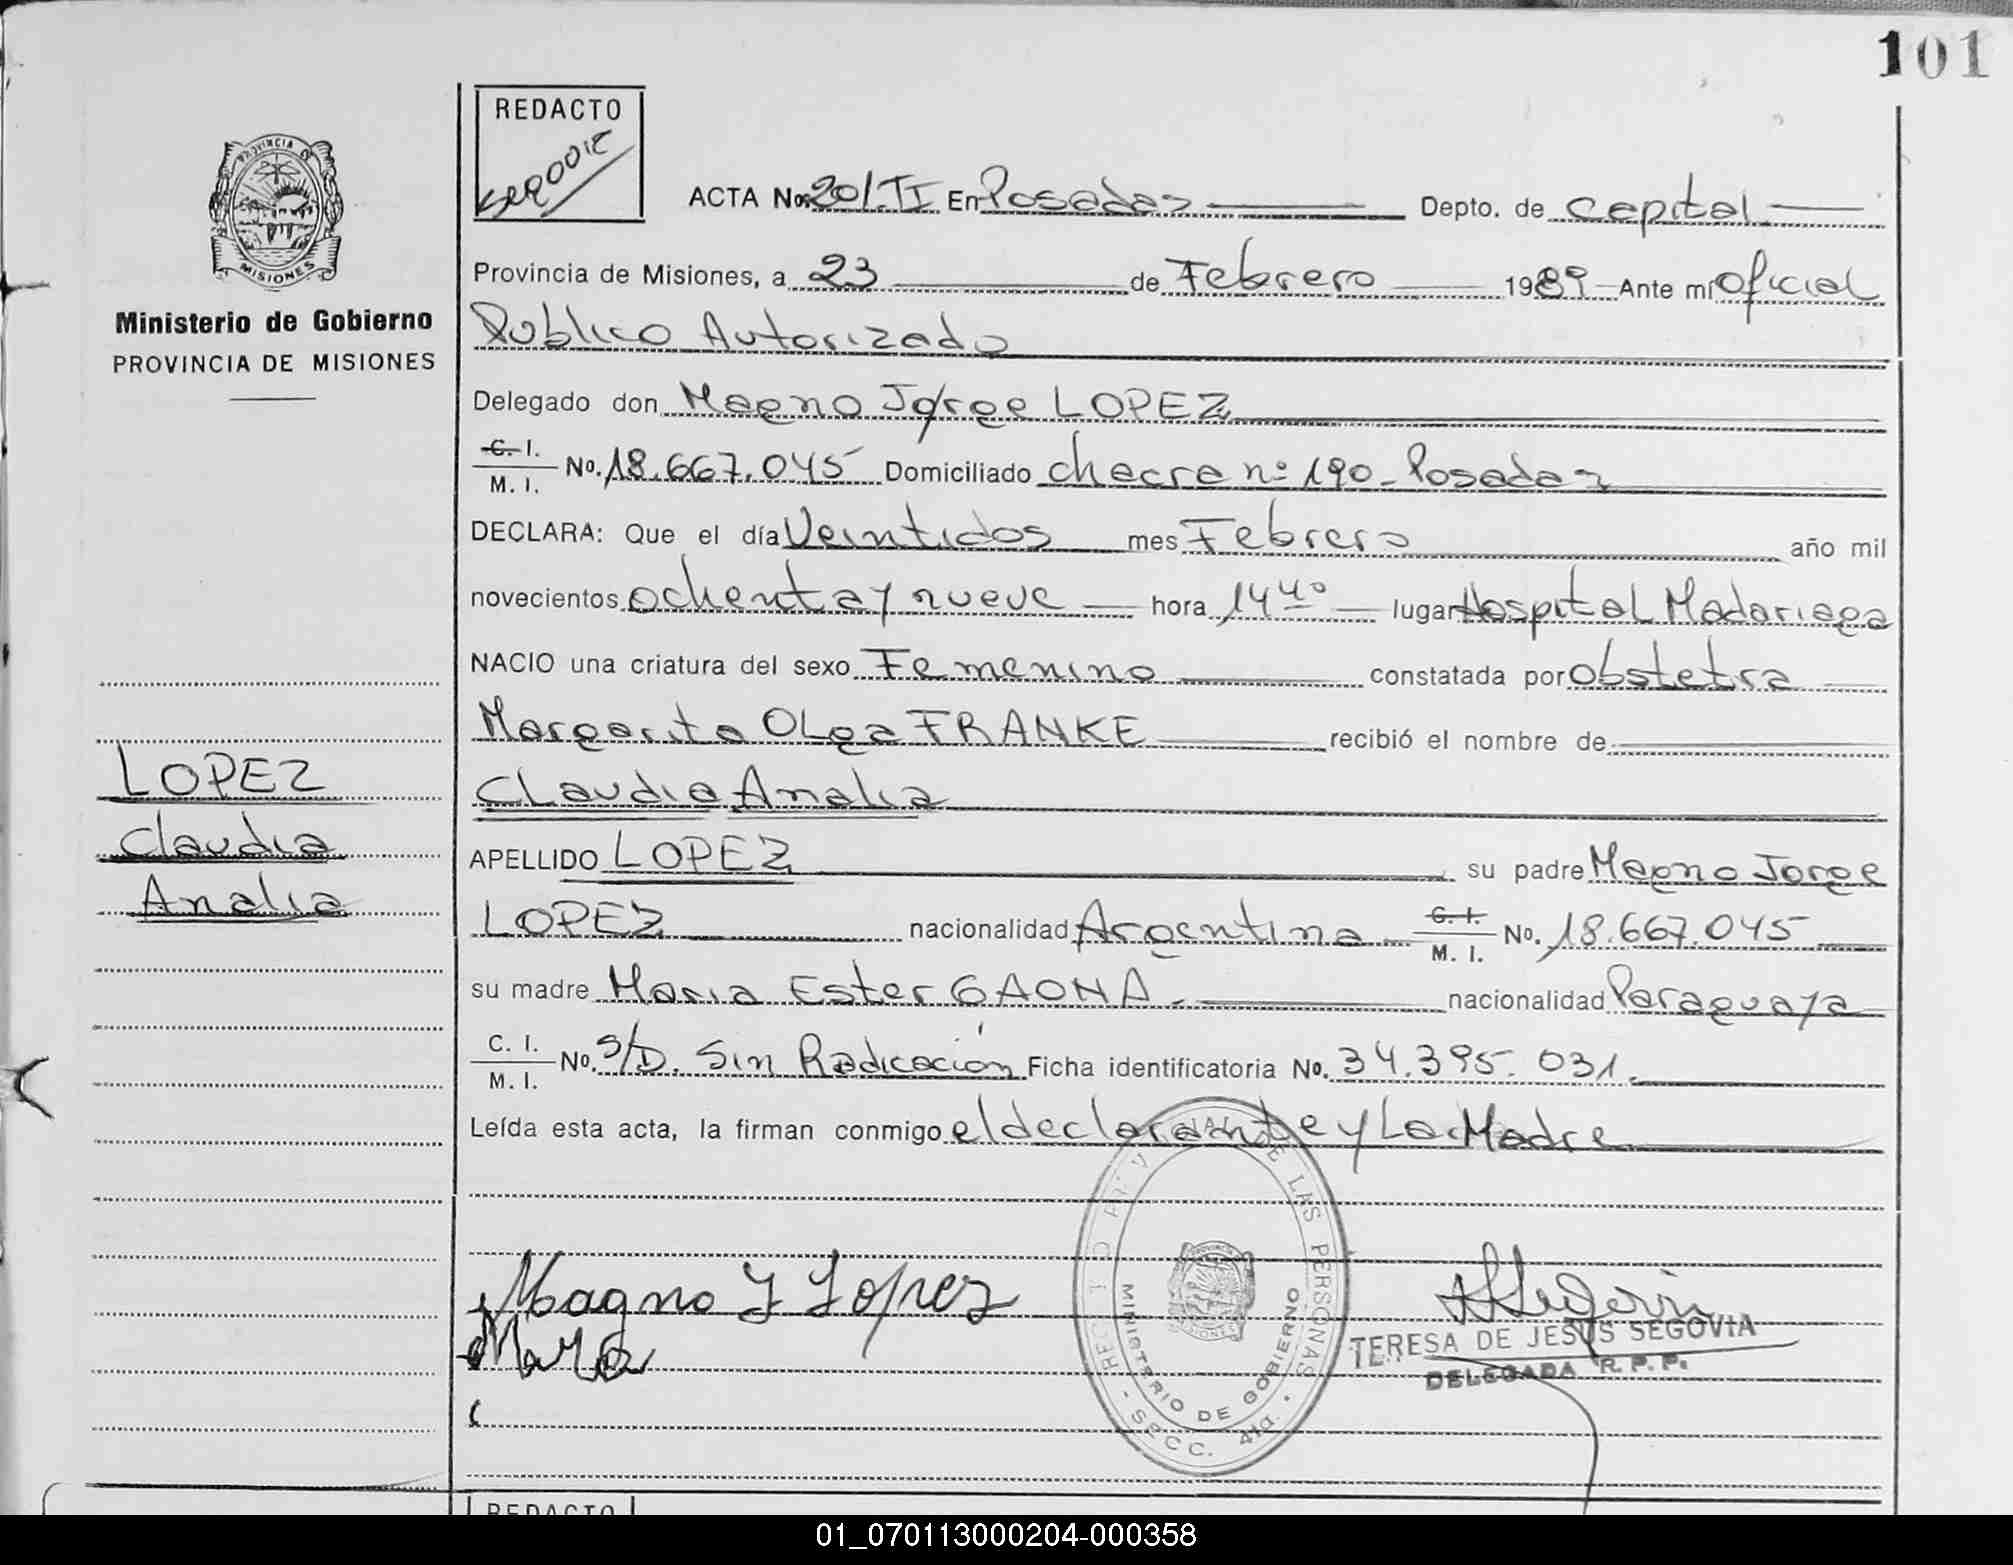 101
REDACTO
PROVINCIA DE
MISIONES
Ministerio de Gobierno
PROVINCIA DE MISIONES
ACTA No. 201.TI En Posadas Depto. de Capital
Provincia de Misiones, a 23 de Febrero 1989 Ante mí Oficial
Publico Autorizado
Delegado don Magno Jorge LOPEZ
C. I.
M. I. No. 18.667.045 Domiciliado chacra nº 190 - Posadas
DECLARA: Que el día Veintidos mes Febrero año mil
novecientos ochenta y nueve hora 14 40 lugar Hospital Madariaga
NACIO una criatura del sexo Femenino constatada por Obstetra
Margarita Olga FRANKE recibió el nombre de
Claudia Analia
APELLIDO LOPEZ su padre Magno Jorge
LOPEZ nacionalidad Argentina C. I. M. I. No. 18.667.045
su madre Maria Ester GAONA. nacionalidad Paraguaya
C. I.
M. I. No. S/D. Sin Radicación Ficha identificatoria No. 34.395.031.
Leída esta acta, la firman conmigo el declarante y La Madre
LOPEZ
Claudia
Analia
Magno J Lopez
MINISTERIO DE GOBIERNO
DE LAS PERSONAS
SECC. 4ta.
TERESA DE JESUS SEGOVIA
DELEGADA R. P. P.
REDACTO
01_070113000204-000358